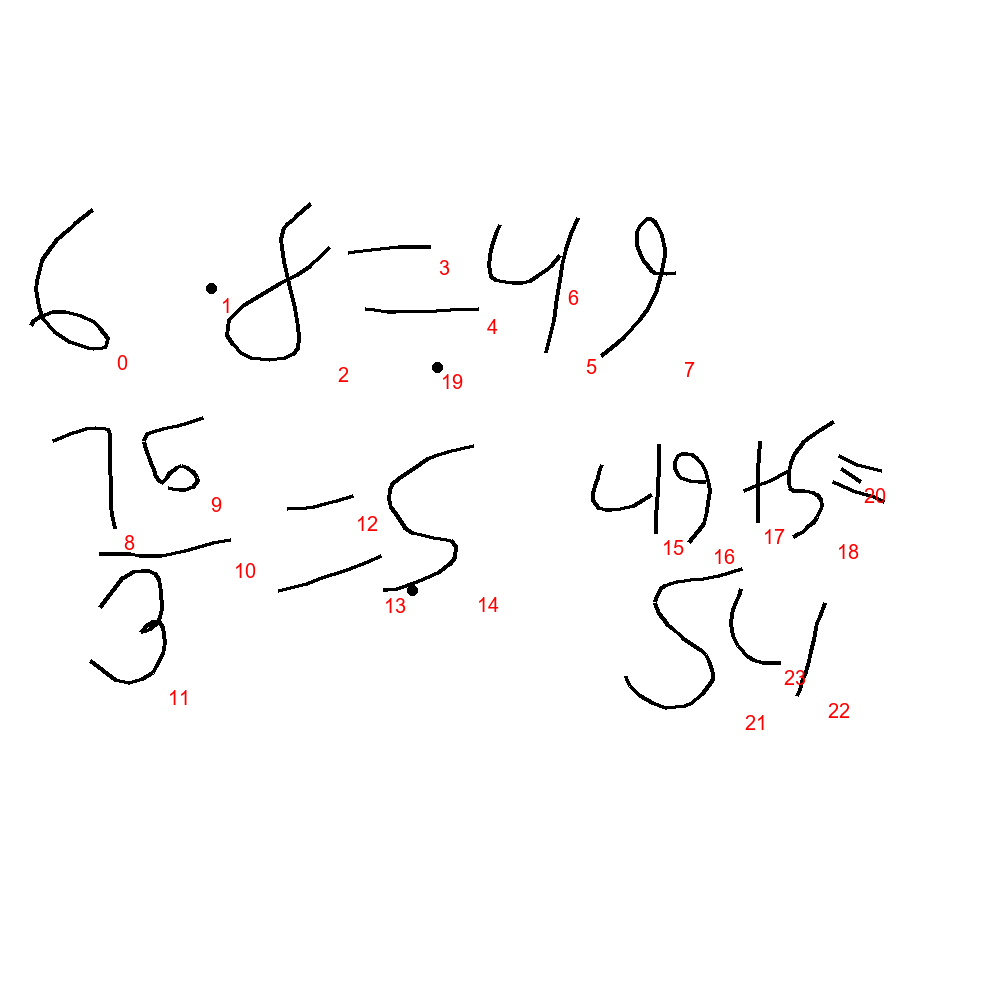 6 · 8 = 49
0 1 2 3 4 5 6 7 19
15
8 9
10
3
11
= 5
12 13 14
49 + 5 =
15 16 17 18 20
54
21 23 22